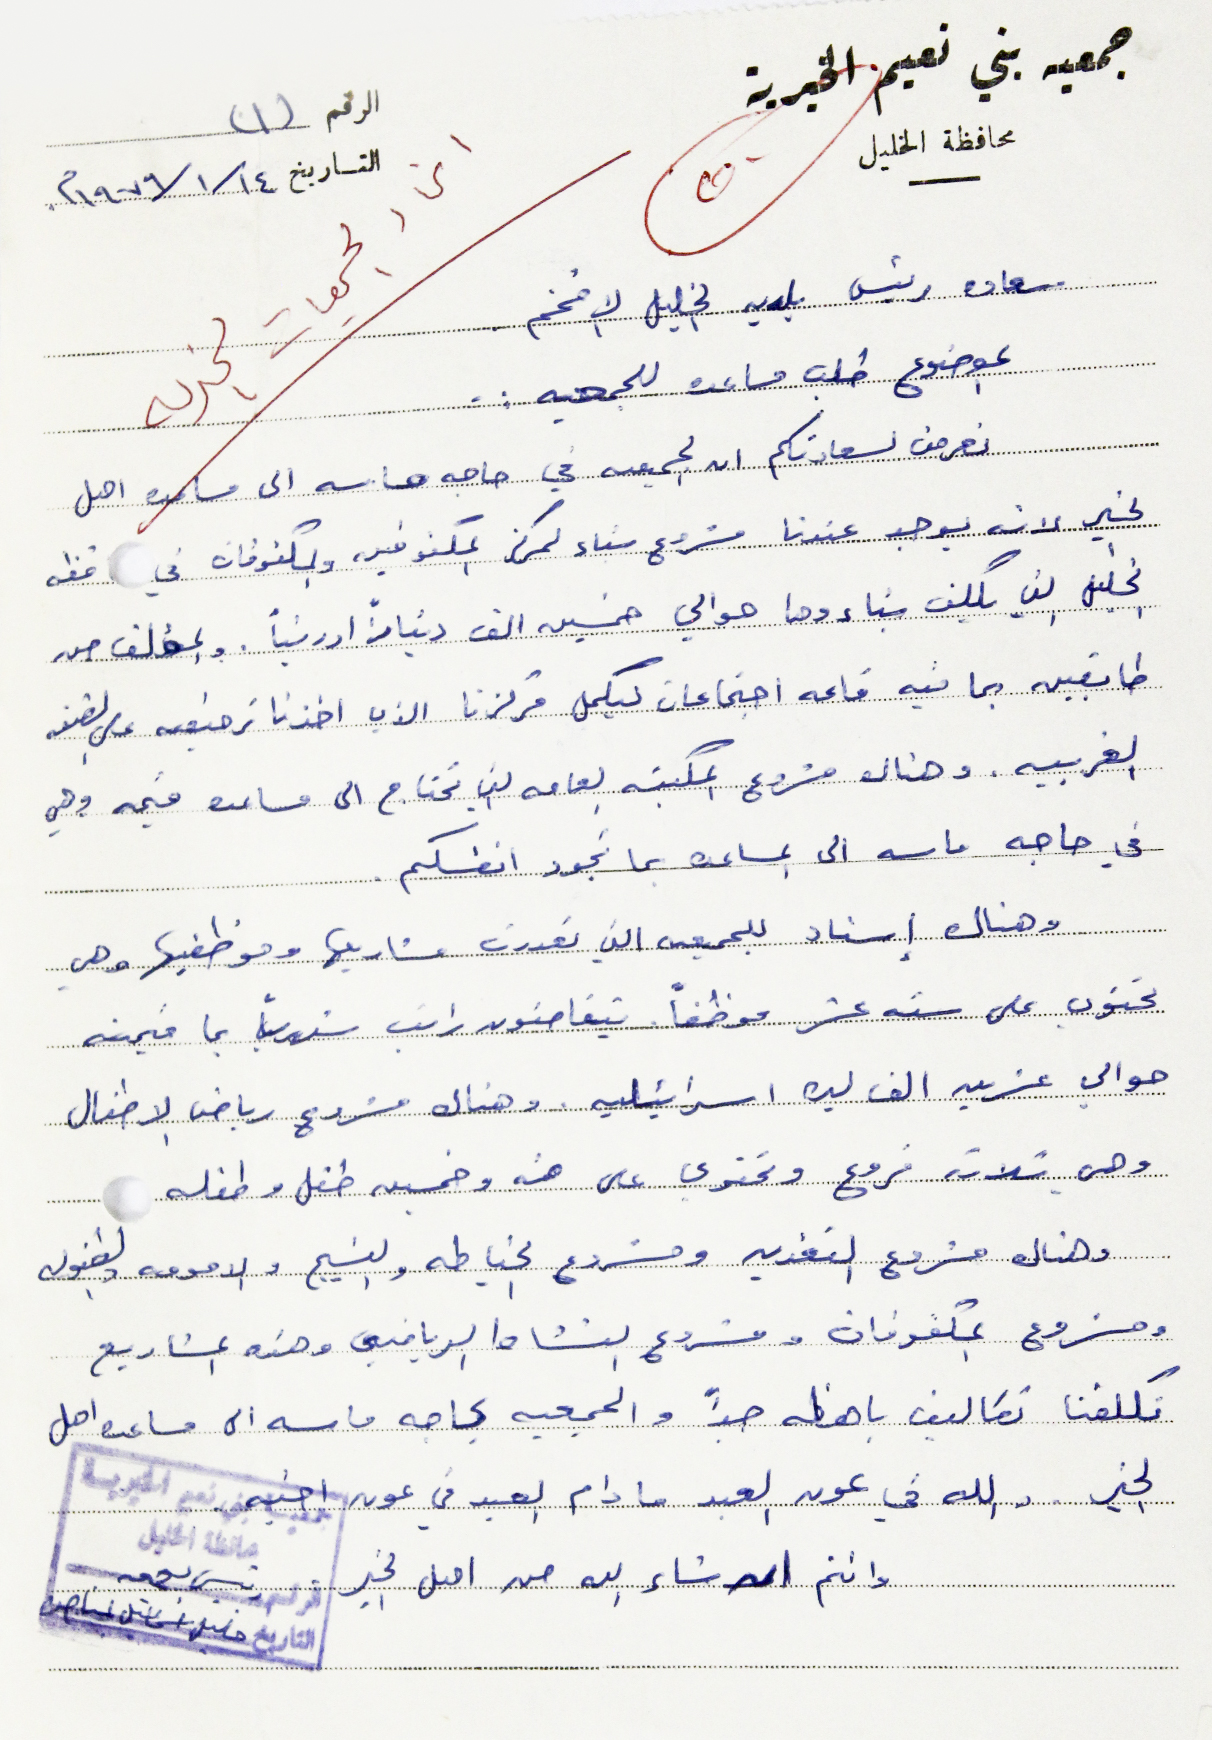 جمعيه بني نعيم الخيرية
محافظة الخليل
الرقم (١)
التاريخ ١٤/١/١٩٧٩م.
الجمعيات الخيريه
سعاده رئيس بلديه الخليل الافخم.
الموضوع طلب مساعده للجمعيه :-
نعرض لسعادتكم ان الجمعيه في حاجه ماسه الى مساعده اهل
الخير لانه يوجد عندنا مشروع بناء لمركز المكفوفين والمكفوفات في
الخليل الذي يكلف بناءوها حوالي خمسين الف ديناراً اردنياً. والمؤلف من
طابقين بما فيه قاعه اجتماعات ليكمل مركزنا الذي اخذنا ترخيصه على الضفه
الغربيه. وهناك مشروع المكتبه العامه التي تحتاج الى مساعده قيمه وهي
في حاجه ماسه الى المساعده بما تجود انفسكم.
وهناك إسناد للجمعيه التي تعددت مشاريعها وموظفيها وهي
تحتوي على سته عشر موظفاً. يتقاضون راتب شهرياً بما قيمته
حوالي عشرين الف ليره اسرائيليه. وهناك مشروع رياض الاطفال
وهي ثلاث فروع وتحتوي على مئه وخمسين طفل وطفله
وهناك مشروع التغذيه ومشروع الخياطه والنسيج والامومه والطفوله
ومشروع المكفوفات ومشروع النشاط الرياضي وهذه المشاريع
تكلفنا تكاليف باهظه جداً والجمعيه بحاجه ماسه الى مساعده اهل
الخير. والله في عون العبد ما دام العبد في عون اخيه.
وانتم ان شاء الله من اهل الخير
جمعية بني نعيم الخيرية
محافظة الخليل
الرقم
رئيس الجمعيه
التاريخ